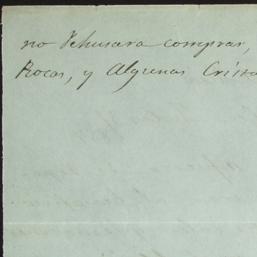 no rehusara comprar,
Rocas, y Algunas Crist